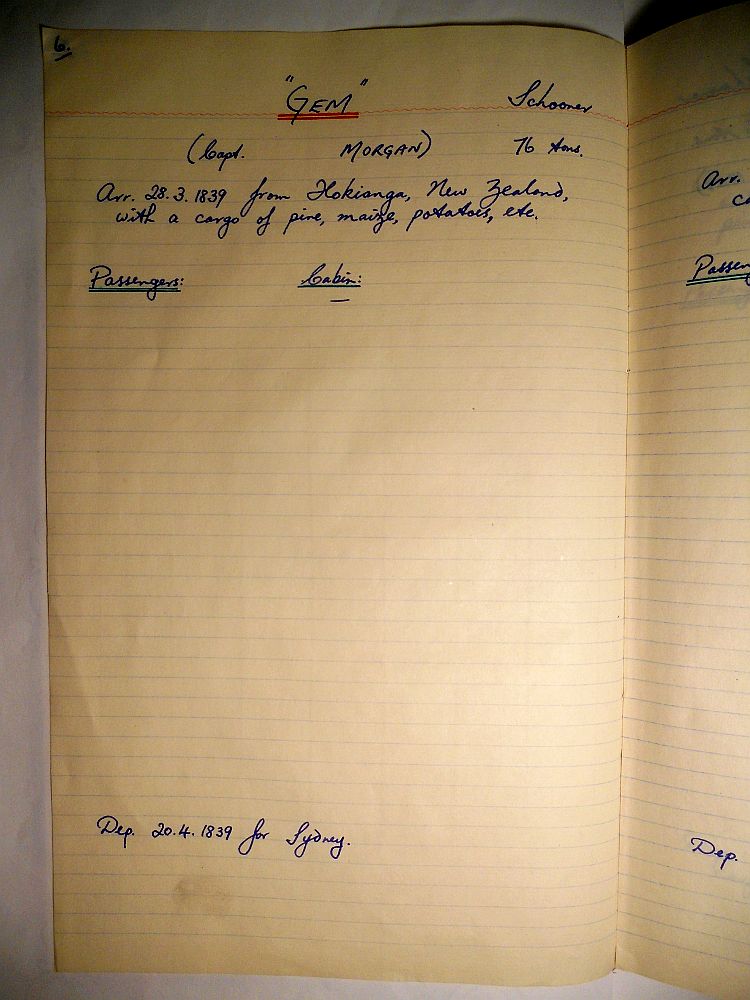 6.
"GEM" Schooner
(Capt. MORGAN) 76 tons.
Arr. 28.3.1839 from Hokianga, New Zealand,
with a cargo of pine, maize, potatoes, etc.
Passengers: Cabin:
—
Dep. 20.4.1839 for Sydney.
Arr.
ca
Passen
Dep.